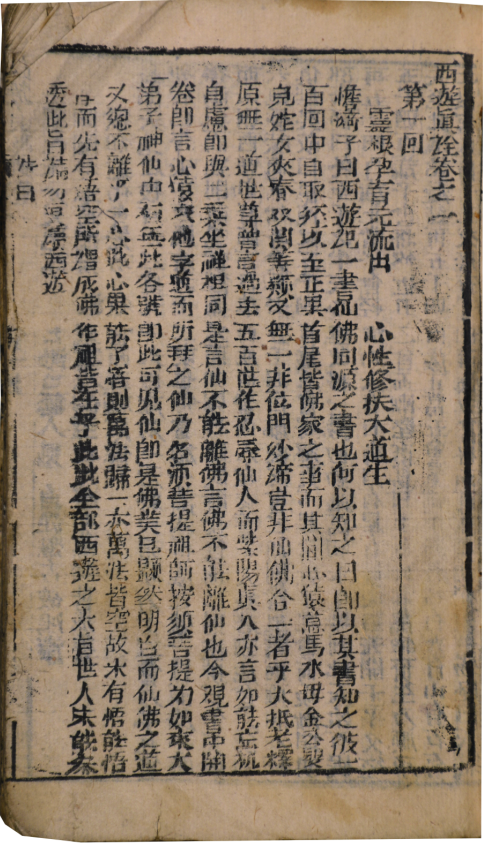 西遊眞詮卷之一
第一回
靈根孕育元流出　心性修持大道生
憺漪子曰西遊記一書仙佛同源之書也何以知之曰卽以其書知之彼一
百回中自取經以至正果首尾皆佛家之事而其間心猿意馬水母金公嬰
兒姹女夾脊双關等類又無一非位門妙諦豈非仙佛合一者乎大抵老釋
原無二道世尊曾言過去五百世作忍辱仙人而紫陽真人亦言如能忘机
息慮卽與二乘坐禅相同是言仙不能離佛言佛不能離仙也今观書中開
卷卽言心猿求他字道而所拜之仙乃名須菩提祖師按須菩提为如來大
弟子神仙中初無此各號卽此可见仙卽是佛矣已顯然明白而仙佛之道
又總不離乎一心此心果能了悟則萬法歸一亦萬法皆空故未有悟能悟
而先有悟空所謂成佛作祖皆在乎此此全部西遊之大旨世人未能參
透此旨西遊